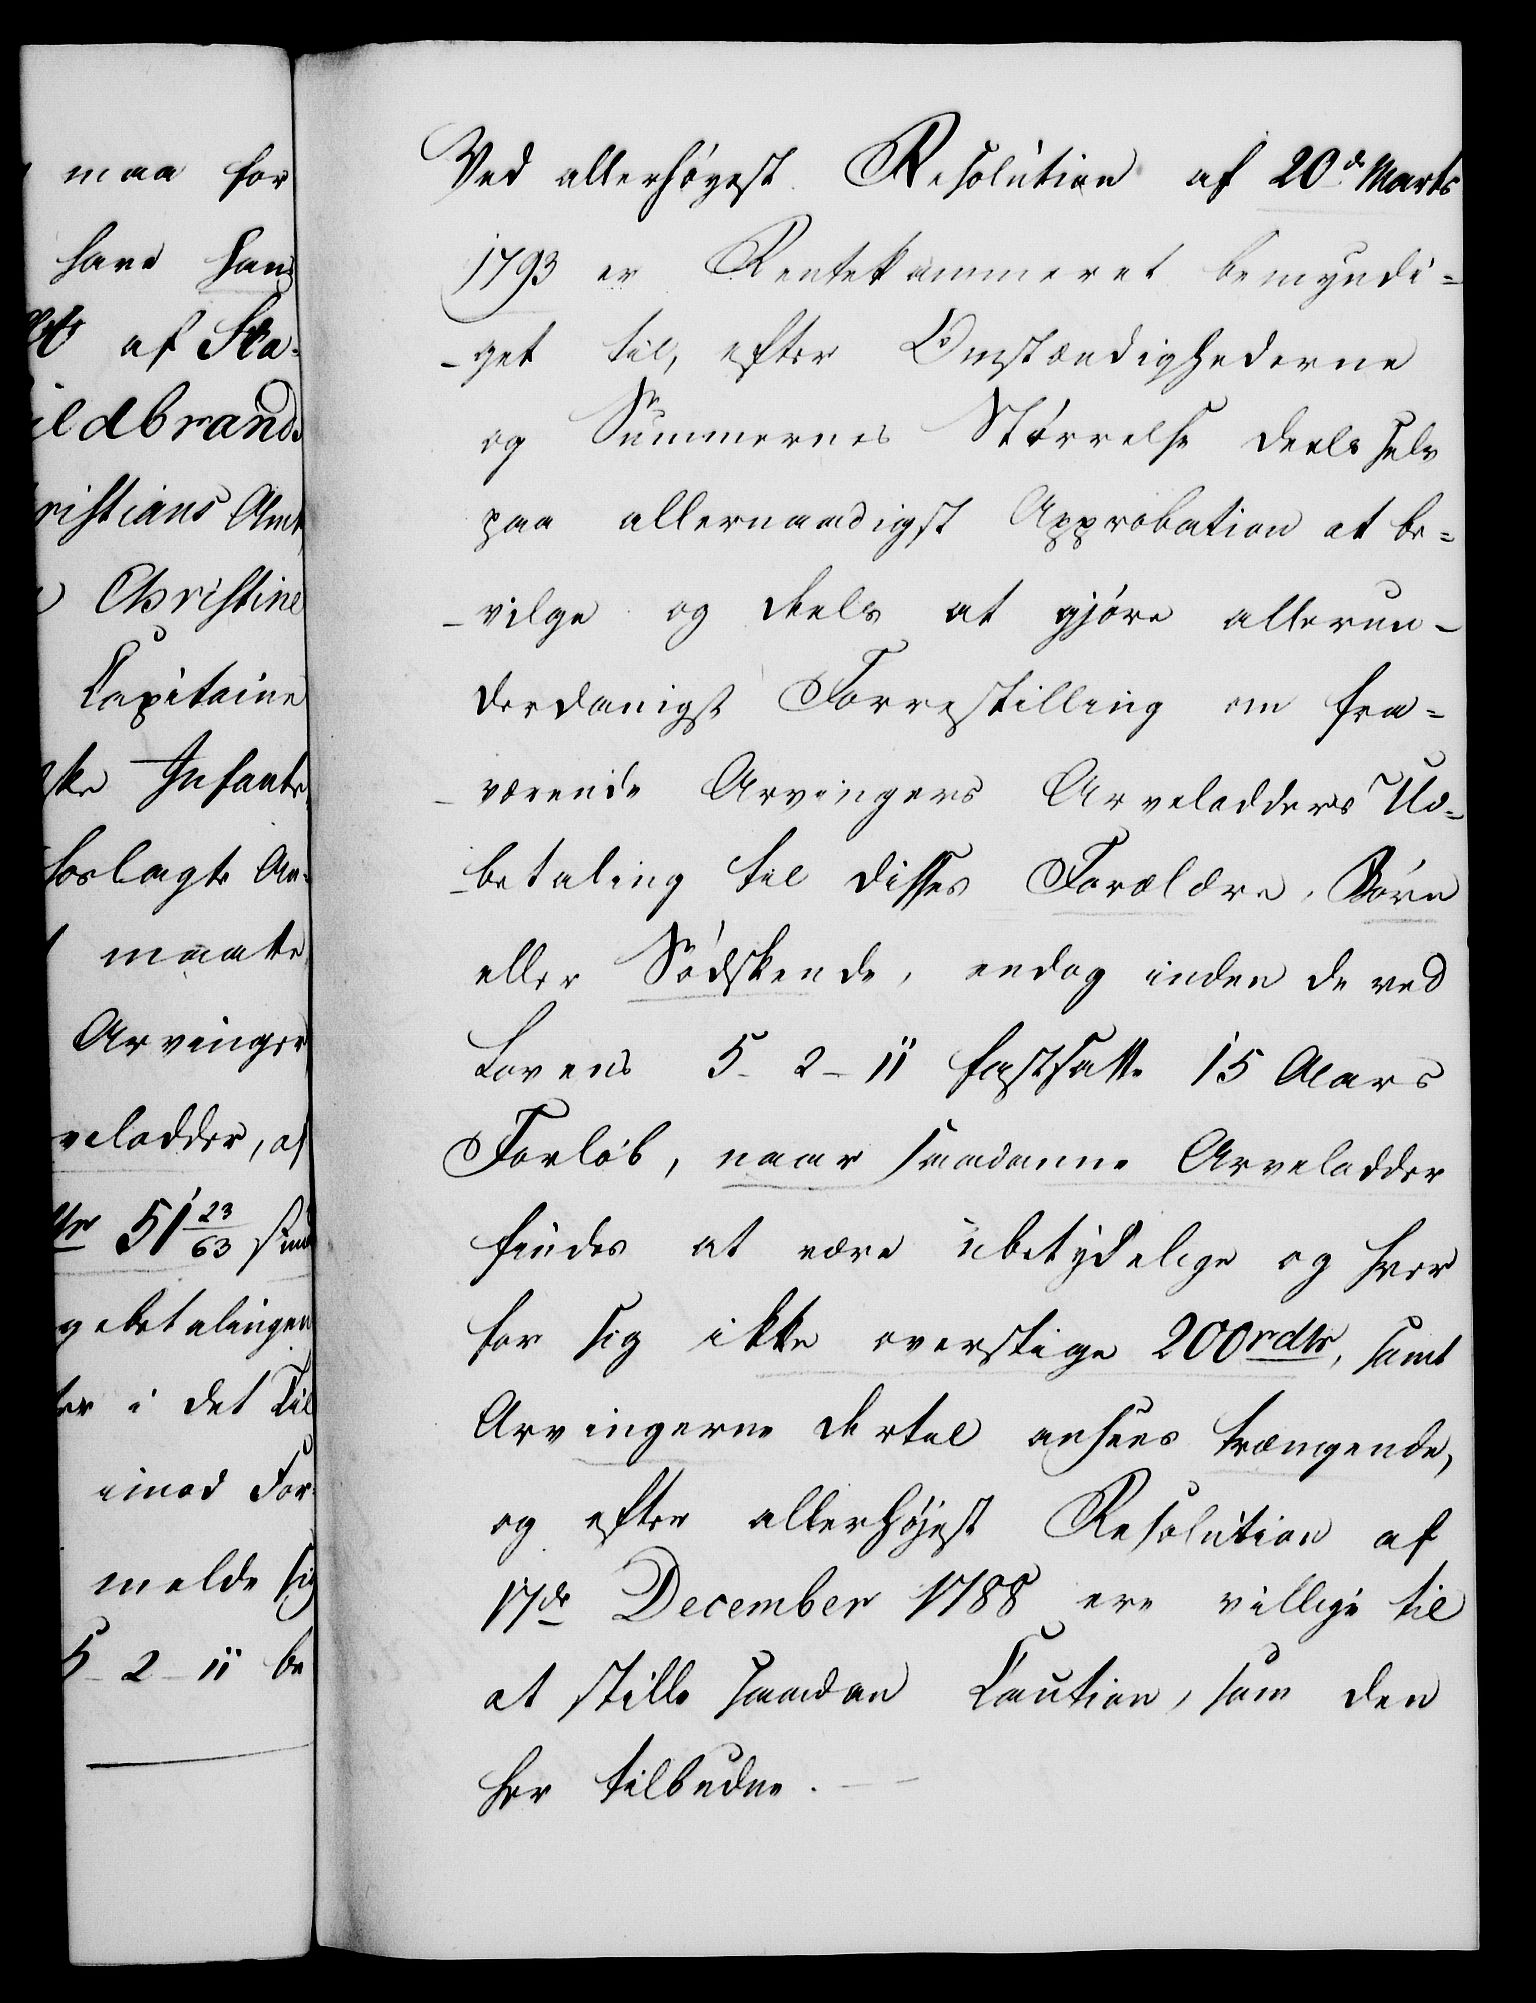 maa for
have hans
af Sta-
ildbrands
ristians Amt,
Christine
Capitaine
ske Infante-
forlagte An-
maatte
Arvinger
veladder, af
51 23/63 sind
gebetalingen
ter i det Til
imod For-
melde sig
5-2-11 be
Ved allerhöyest Resolution af 20de Marts
1793 er Rentekammeret bemyndi=
-get til, efter Omstændighederne
og Summernes Störrelse deels selv
paa allernaadigst Approbation at be=
-vilge og deels at gjöre allerun-
derdanigst Forrestilling om fra=
-værende Arvingers Arveladders Ud=
-betaling til disses Forældre, Börn
eller Södskende, endog inden de ved
Lovens 5-2-11 fastsatte 15 Aars
Forlöb, naar saadanne Arveladder
findes at være ubetydelige og hver
for sig ikke overstige 200rdlr, samt
Arvingerne dertil ansees trængende,
og efter allerhöjest Resolution af
17de December 1788 ere villige til
at stille saadan Caution, som den
her tilbudne.